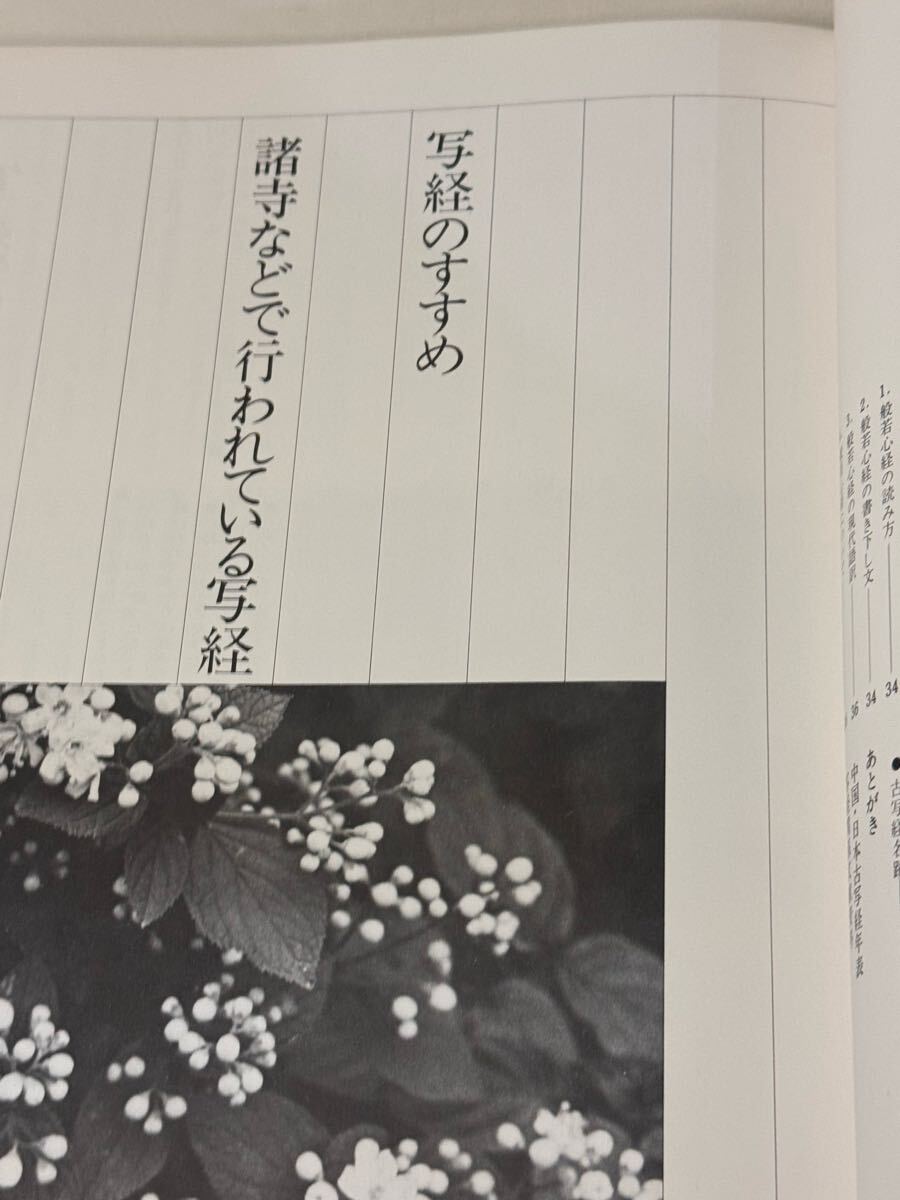 1. 般若心経の読み方 34
2. 般若心経の書き下し文 34
3. 般若心経の現代語訳 36
●古写経名蹟
あとがき
中国・日本古写経年表
写経のすすめ
諸寺などで行われている写経